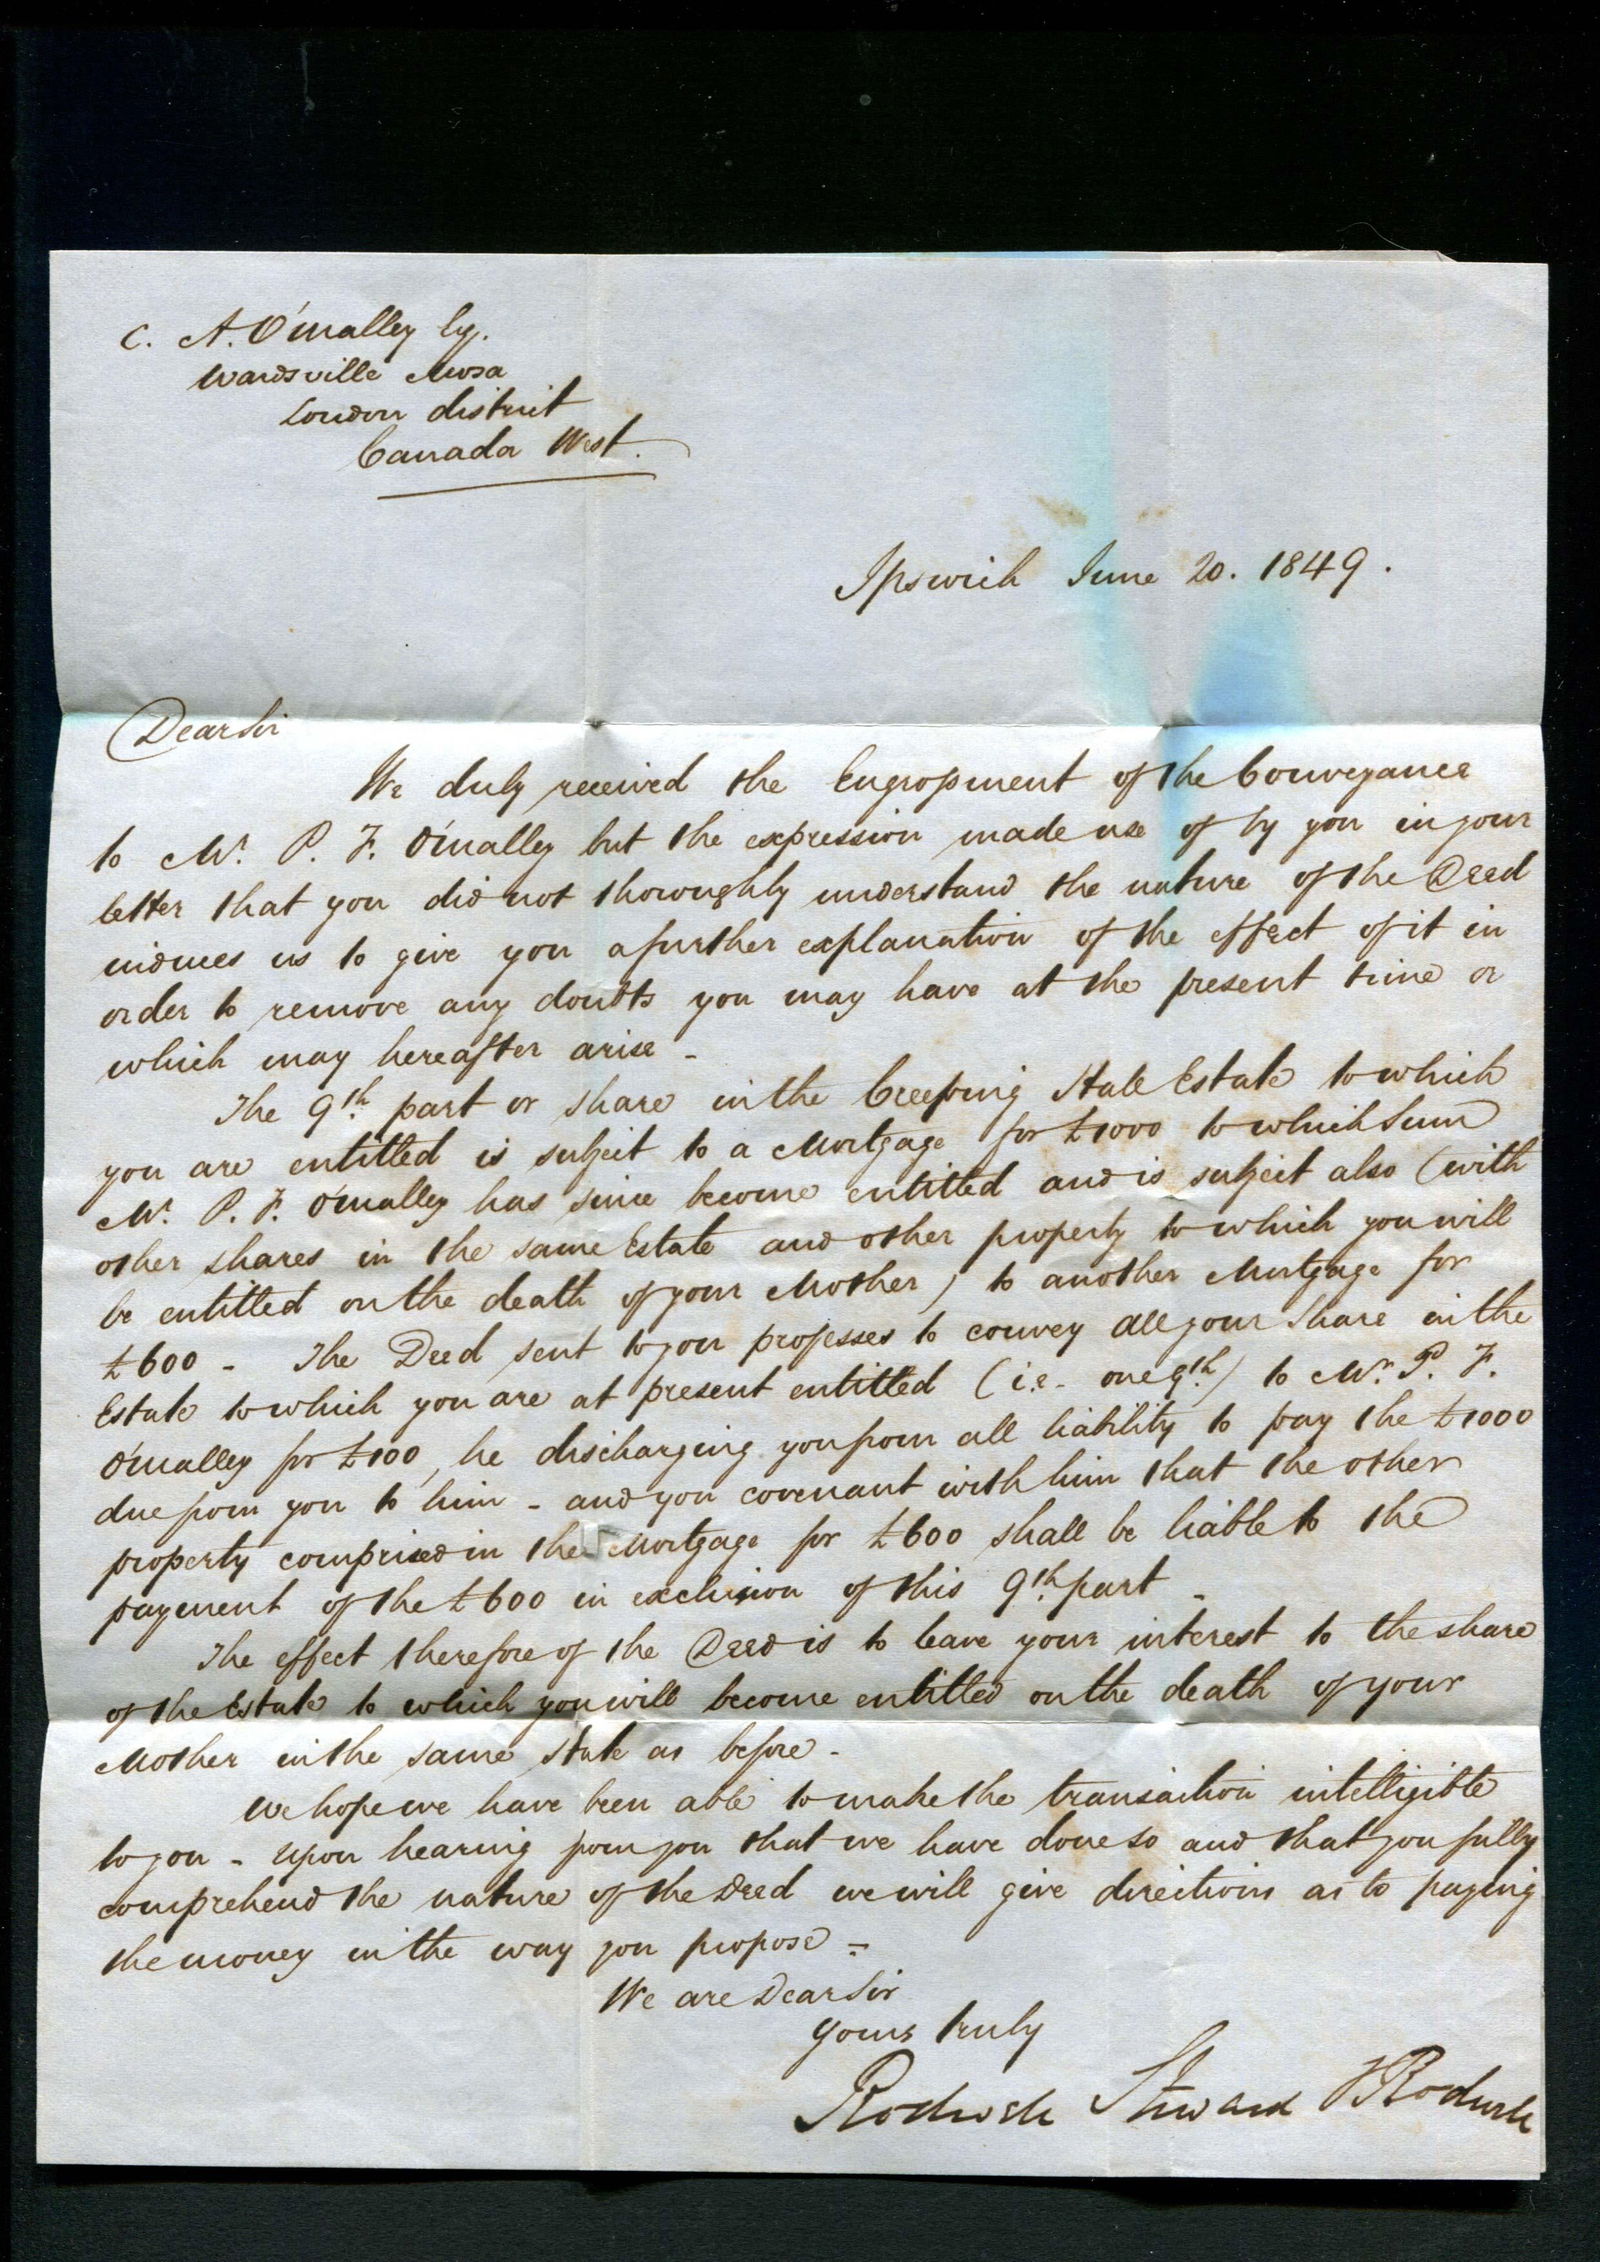 C. A. O'Malley Esq.
Wardsville Mosa
London district
Canada West.
Ipswich June 20. 1849.
Dear Sir
We duly received the Engrossment of the Conveyance
to Mr. P. F. O'Malley but the expression made use of by you in your
letter that you did not thoroughly understand the nature of the Deed
induces us to give you a further explanation of the effect of it in
order to remove any doubts you may have at the present time or
which may hereafter arise -
The 9th. part or share in the Creeping Hall Estate to which
you are entitled is subject to a Mortgage for £1000 to which Sum
Mr. P. F. O'Malley has since become entitled and is subject also (with
other shares in the same Estate and other property to which you will
be entitled on the death of your Mother) to another Mortgage for
£600 - The Deed sent to you professes to convey all your Share in the
Estate to which you are at present entitled (i.e. one 9th.) to Mr. P. F.
O'Malley for £100, he discharging you from all liability to pay the £1000
due from you to him - and you covenant with him that the other
property comprised in the Mortgage for £600 shall be liable to the
payment of the £600 in exclusion of this 9th. part -
The effect therefore of the Deed is to leave your interest to the share
of the Estate to which you will become entitled on the death of your
Mother in the same state as before -
We hope we have been able to make the transaction intelligible
to you - Upon hearing from you that we have done so and that you fully
comprehend the nature of the Deed we will give directions as to paying
the money in the way you propose -
We are Dear Sir
Yours truly
Rodwell Steward & Rodwell